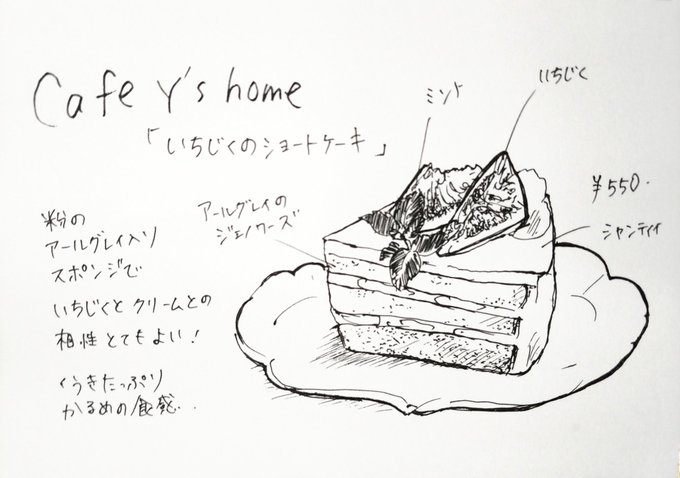 Cafe Y's home
「いちじくのショートケーキ」
ミント
いちじく
¥550.
シャンティイ
アールグレイの
ジェノワーズ
粉の
アールグレイ入り
スポンジで
いちじくとクリームとの
相性とてもよい!
くうきたっぷり
かるめの食感.